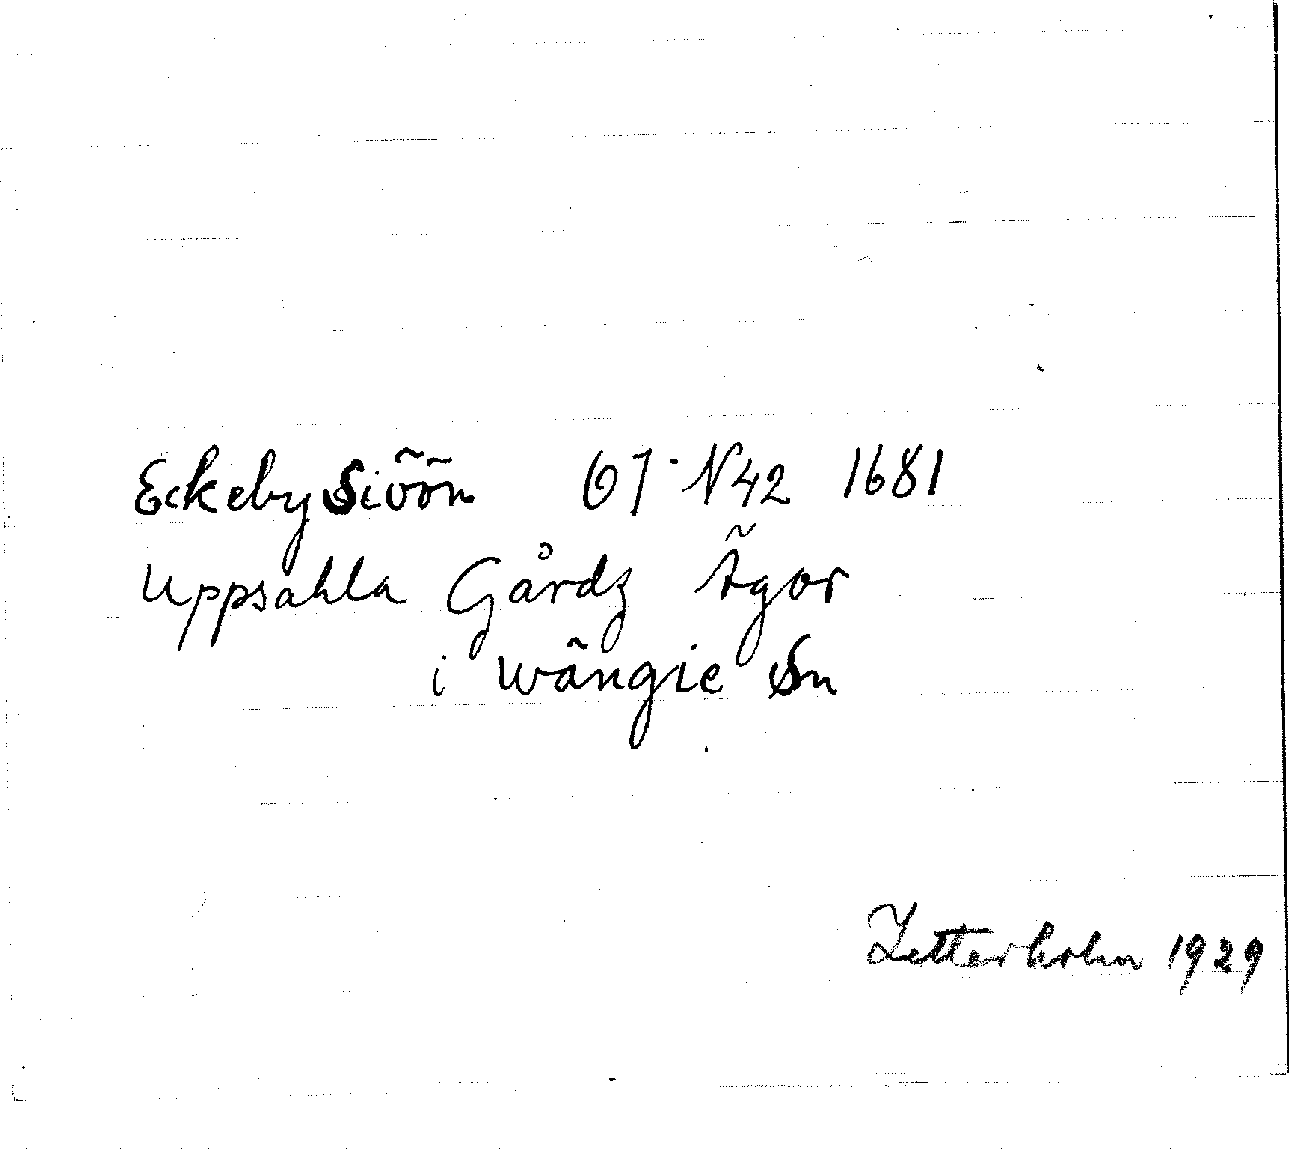 Eckeby Siöön 67·N42 1681
Uppsahla Gårdz Ägor
i wängie Sn
Zetterholm 1929